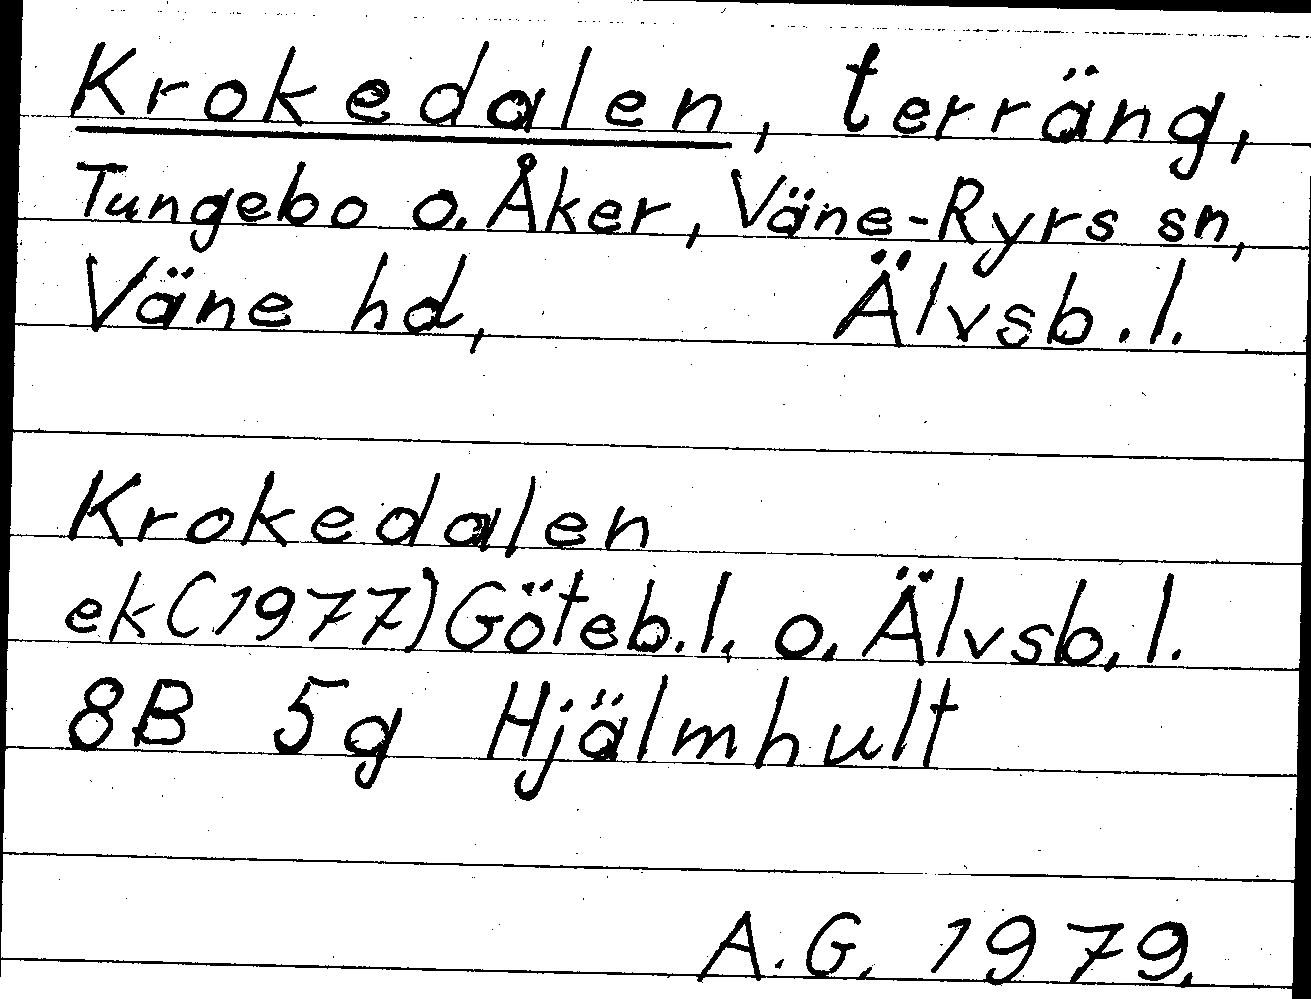 Krokedalen, terräng,
Tungebo o. Åker, Väne-Ryrs sn,
Väne hd, Älvsb.l.
Krokedalen
ek (1977) Göteb.l. o. Älvsb.l.
8B 5g Hjälmhult
A.G. 1979.